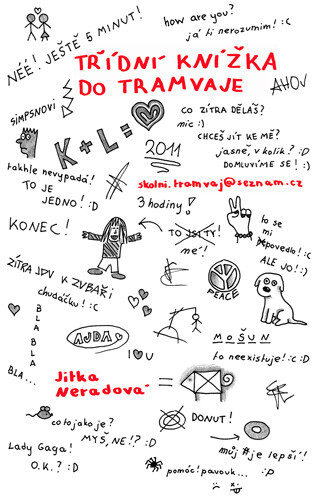 how are you?
já ti nerozumím! :C
NÉÉ! JEŠTĚ 5 MINUT!
TŘÍDNÍ KNÍŽKA
DO TRAMVAJE
AHOJ
SIMPSNOVI
K + L =
CO ZÍTRA DĚLÁŠ?
nic :)
CHCEŠ JÍT KE MĚ?
jasně, v kolik? :D
DOMLUVÍME SE! :)
2011
takhle nevypadá!
TO JE
JEDNO! :D
skolni.tramvaj@seznam.cz
3 hodiny!
KONEC!
TO JSI TY!
mě!
to se
mi
povedlo! :C
ALE JO! :)
ZÍTRA JDU K ZUBAŘI
chudáčku! :C
PEACE
BLA BLA
BLA...
AJDA
I U
MOŠUN
to neexistuje! :C :D
Jitka
Neradová
=
co to jako je?
MYŠ, NE!? :D
DONUT!
můj je lepší!
Lady Gaga!
O.K.? :D
pomóc! pavouk... :P